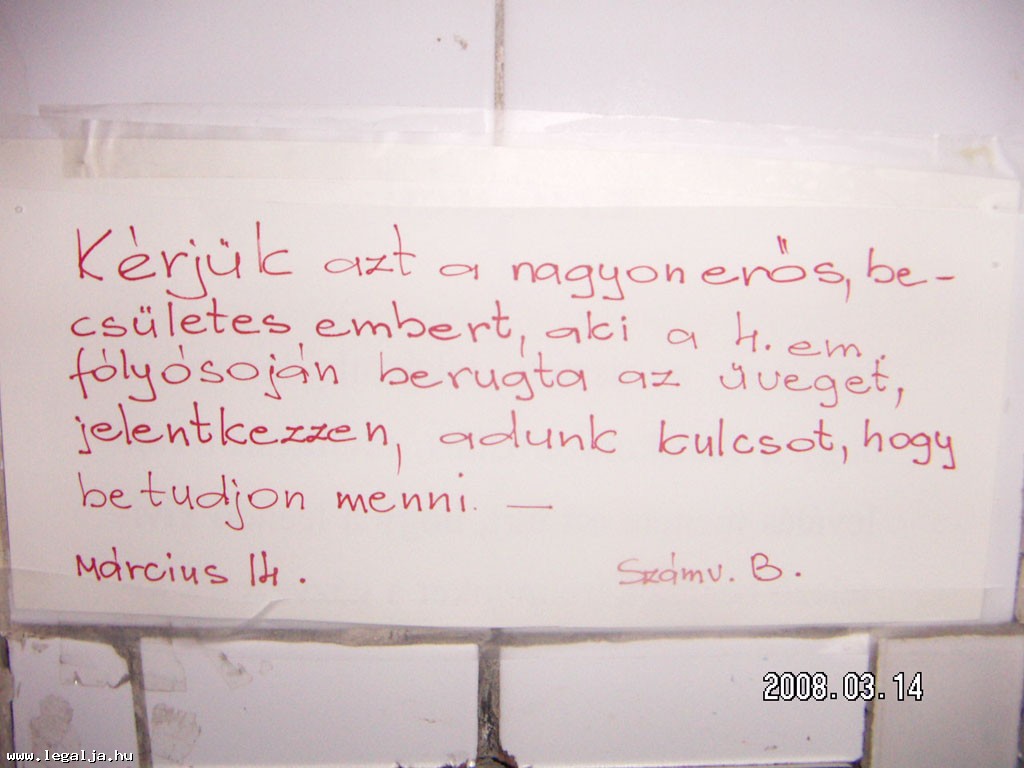 Kérjük azt a nagyon erős, be-
csületes embert, aki a 4. em.
fólyósoján berugta az üveget,
jelentkezzen, adunk kulcsot, hogy
be tudjon menni. —
Március 14.
Számv. B.
2008.03.14
www.legalja.hu